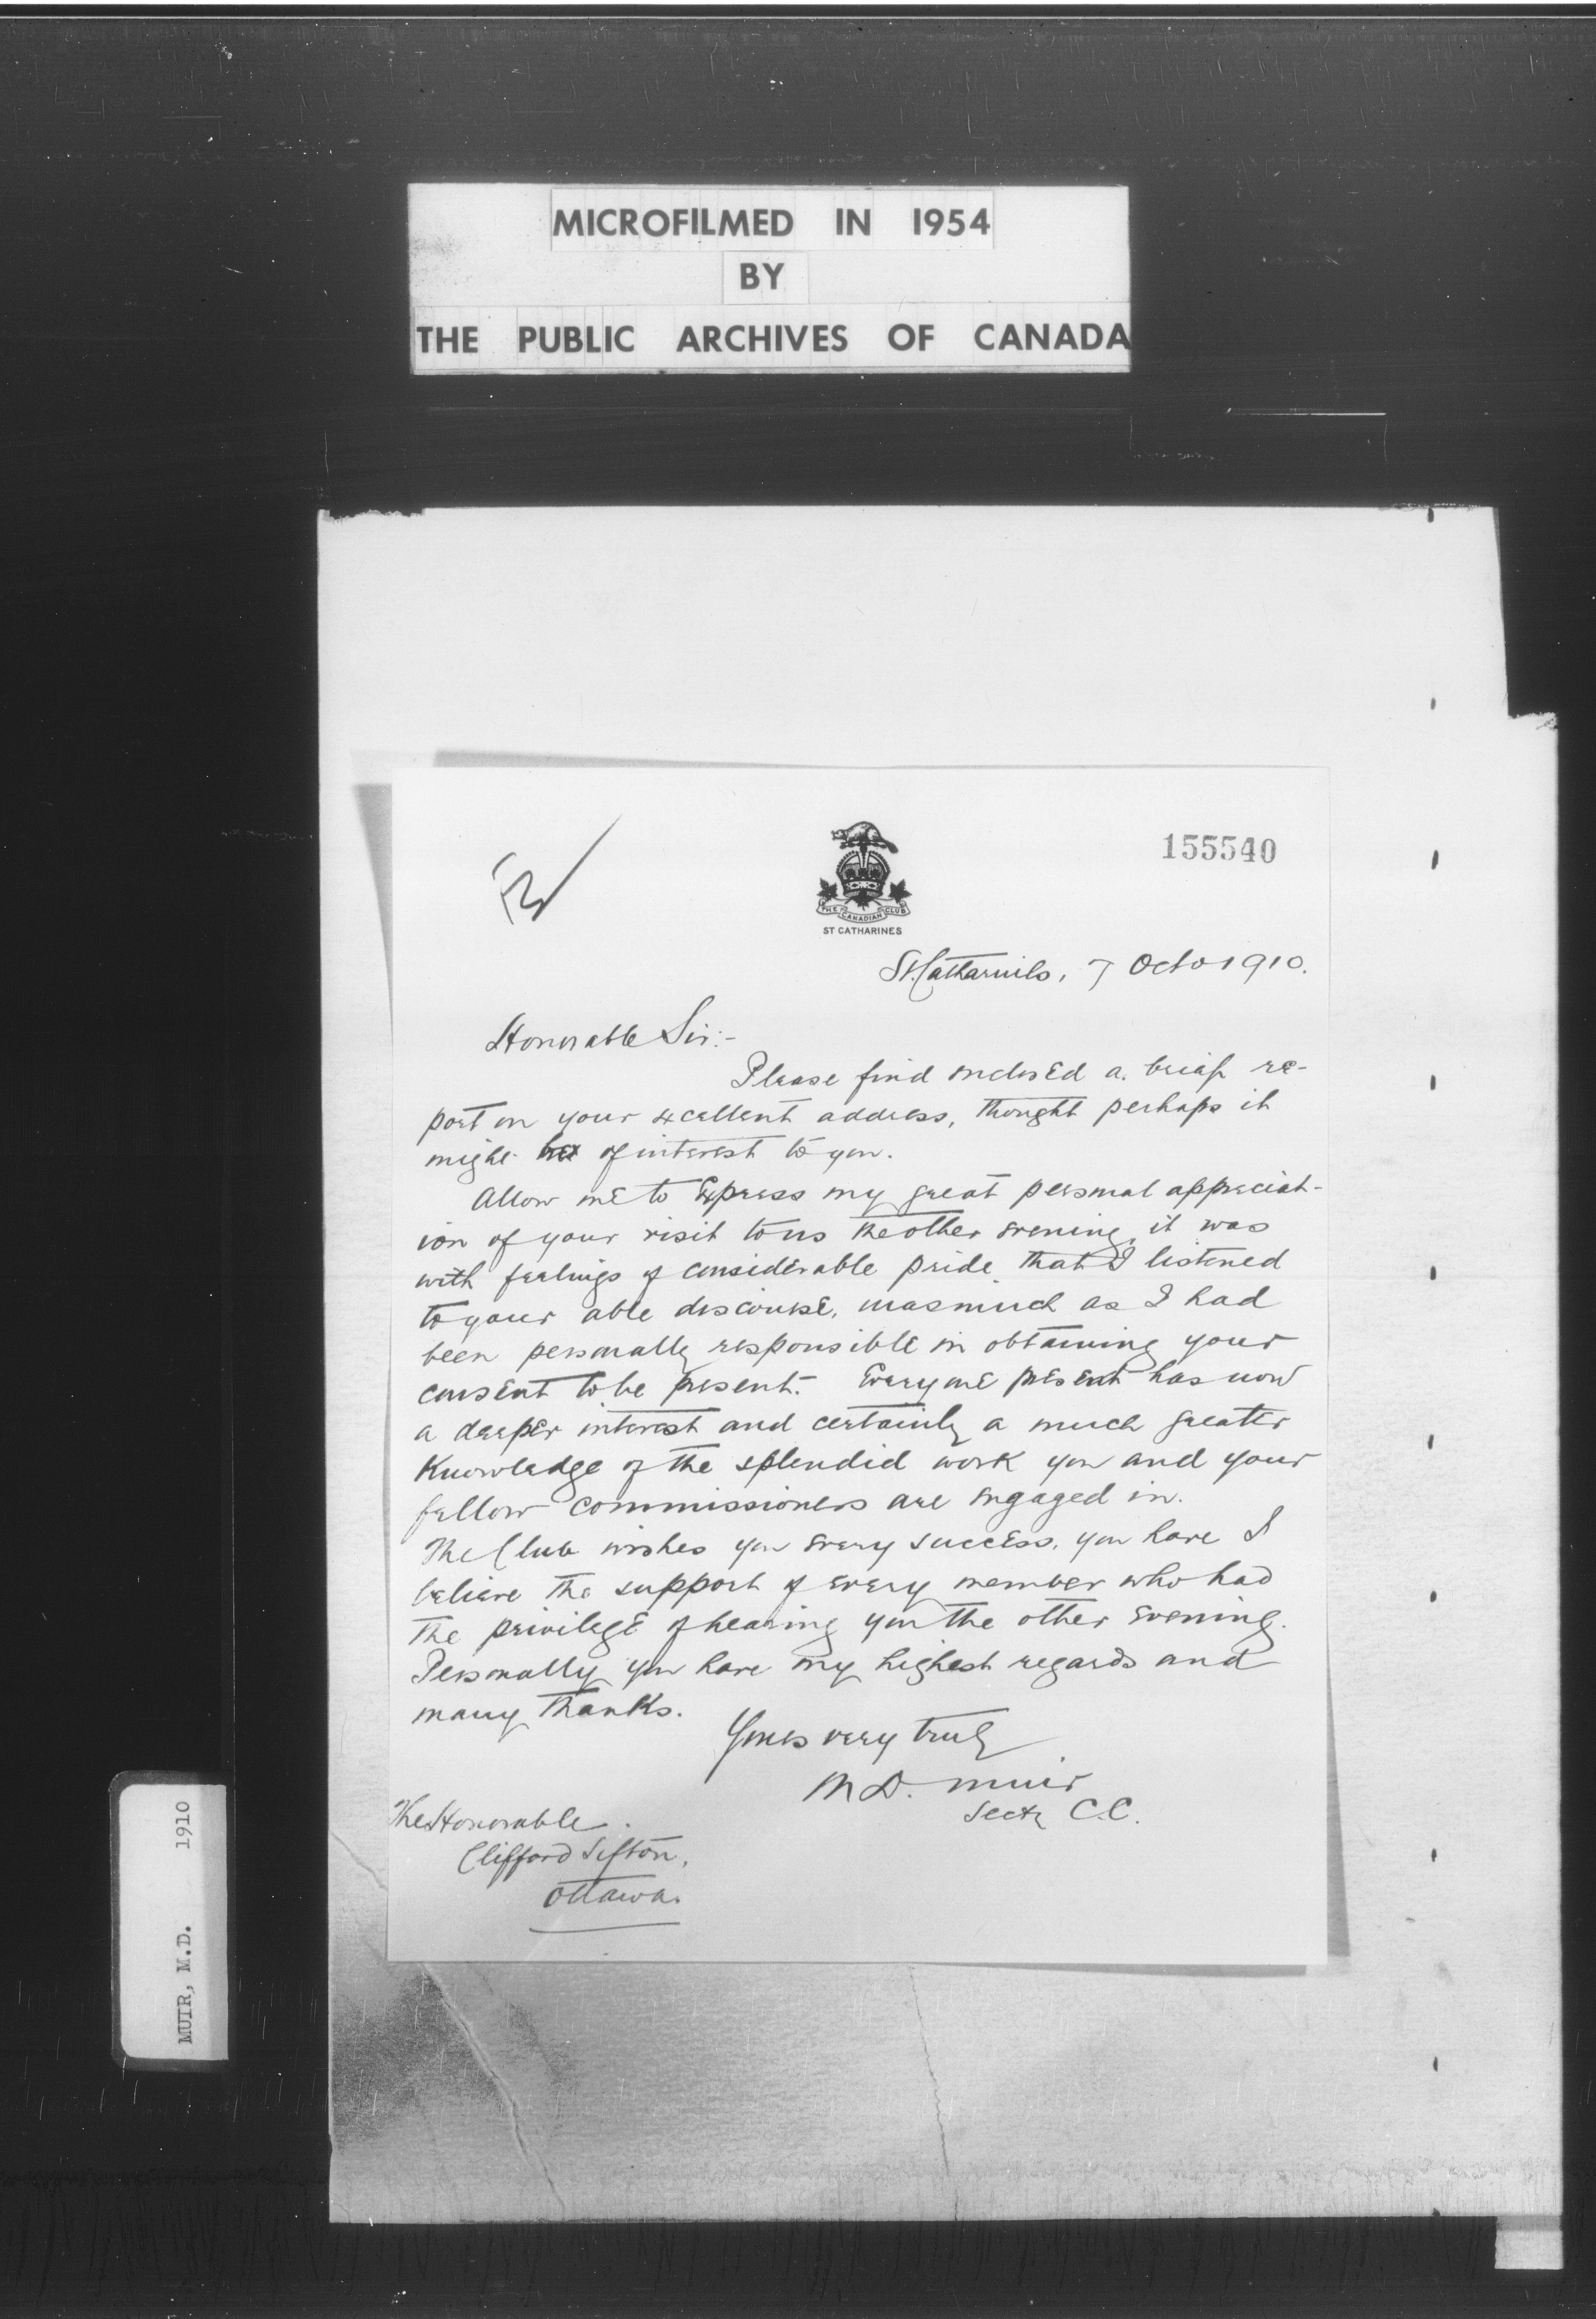 MICROFILMED IN 1954
BY
THE PUBLIC ARCHIVES OF CANADA
155540
THE CANADIAN CLUB
ST CATHARINES
St. Catharines, 7 Octo 1910.
Honorable Sir:-
Please find enclosed a brief re-
port on your excellent address, thought perhaps it
might be of interest to you.
Allow me to Express my great personal appreciat-
ion of your visit to us the other evening, it was
with feelings of considerable pride that I listened
to your able discourse, inasmuch as I had
been personally responsible in obtaining your
consent to be present. Everyone present has now
a deeper interest and certainly a much greater
Knowledge of the splendid work you and your
fellow commissioners are engaged in.
The Club wishes you every success, you have I
believe the support of every member who had
the privilege of hearing you the other evening.
Personally you have my highest regards and
many thanks.
Yours very truly
M D. Muir
Secty C.C.
The Honorable
Clifford Sifton,
Ottawa.
MUIR, M.D. 1910